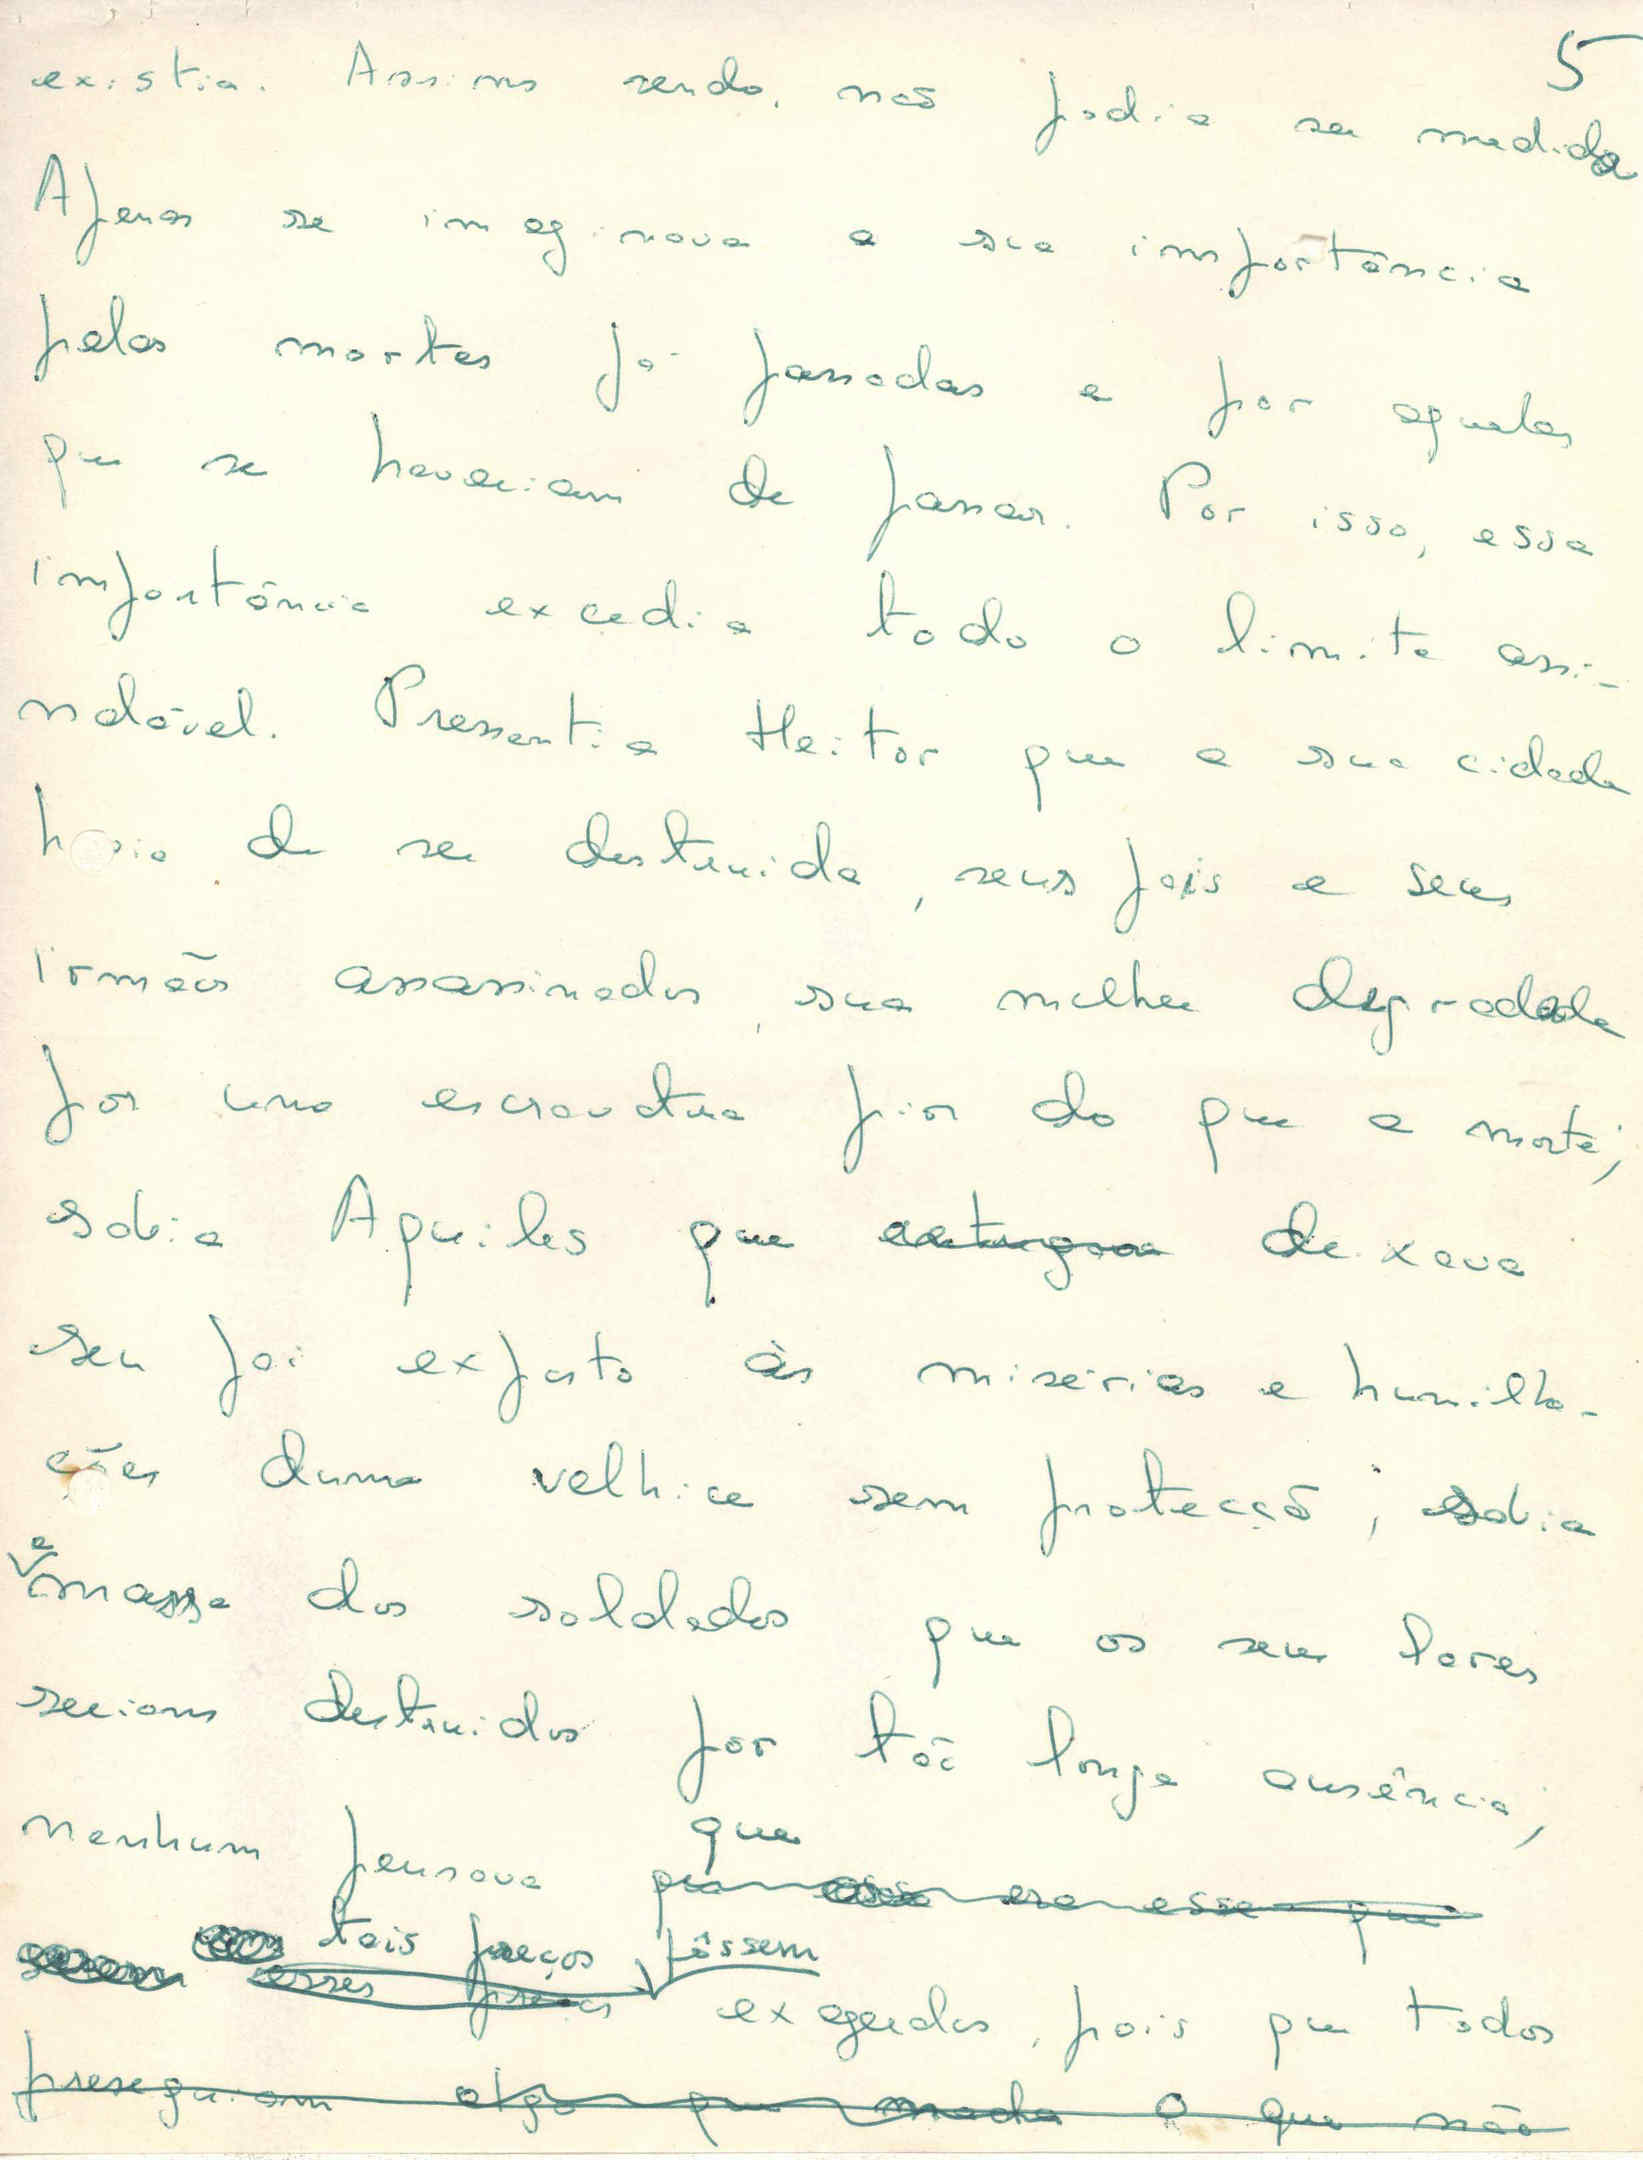 5
existia. Assim sendo, não podia ser medida
Apenas se imaginava a sua importância
pelas mortes já passadas e por aquelas
que se haveriam de passar. Por isso, essa
importância excedia todo o limite assi-
nalável. Pressentia Heitor que a sua cidade
havia de ser destruida, seus pais e seus
irmãos assassinados, sua mulher degradada
por uma escravatura pior do que a morte;
sabia Aquiles que deixava
seu pai exposto às misérias e humilha-
ções duma velhice sem protecção; sabia
a massa dos soldados que os seus lares
seriam destruidos por tão longa ausência;
nenhum pensava que
que esse era esse que
tais preços fôssem
esses preços exagerados, pois que todos
preseguiam algo que nada o que não